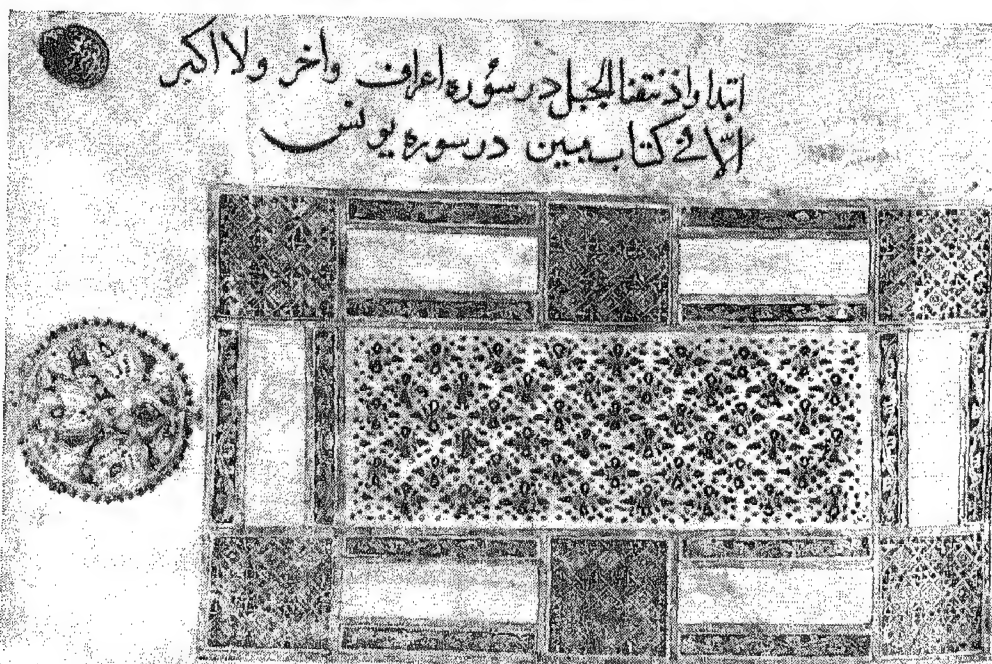 ابتدا واذ نتقنا الجبل در سوره اعراف واخر ولا اكبر
الا في كتاب مبين در سوره يونس